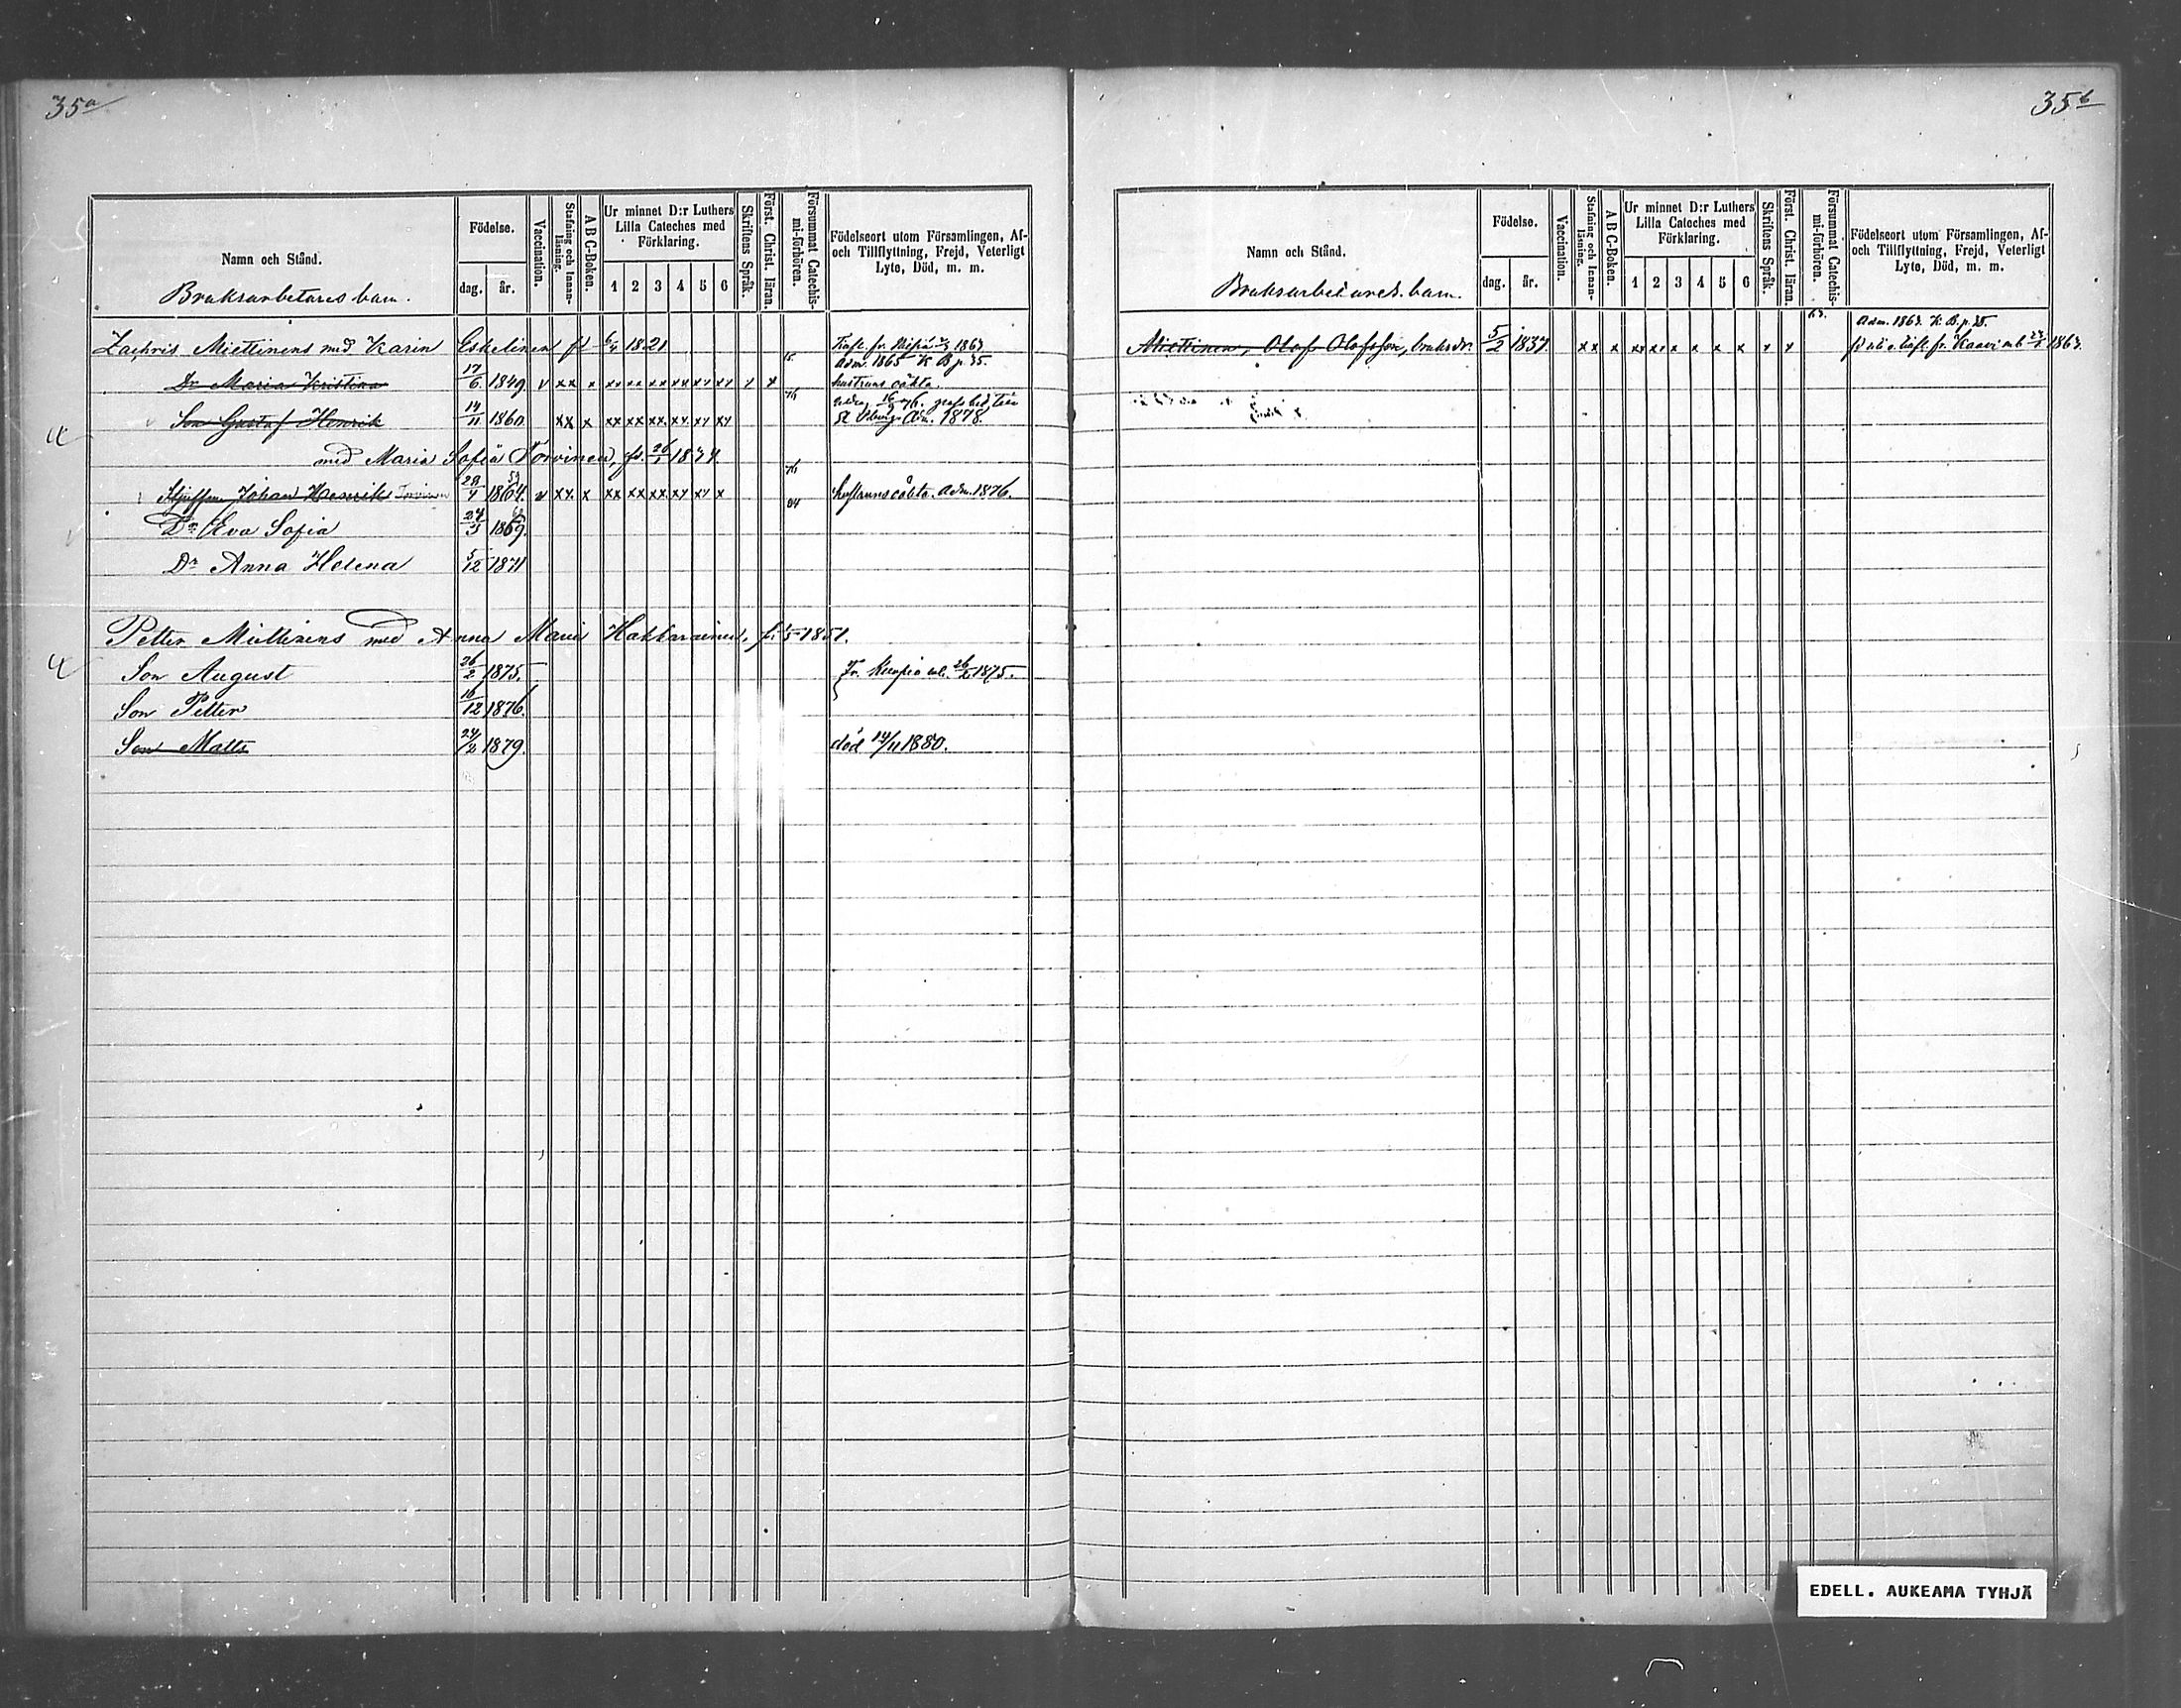 35a
Namn och Stånd.
Bruksarbetares barn.
Födelse.
dag. år.
Vaccination.
Stafning och Innanläsning.
A B C-Boken.
Ur minnet D:r Luthers
Lilla Cateches med
Förklaring.
1 2 3 4 5 6
Skriftens Språk.
Först. Christ. läran.
Försummat Catechis-
mi-förhören.
Födelseort utom Församlingen, Af-
och Tillflyttning, Frejd, Veterligt
Lyto, Död, m. m.
Zachris Miettinens med Karin Eskelinen fd 6/4 1821 1863
Adm. 1865 K B p. 35.
Dr Maria Kristina 17/6 1849 v xx x xx xx xx xx xx xx x x hustruns oäkta.
16/9 76.
Son Gustaf Henrik 14/11 1860 xx x xx xx xx xx xx xx Adm. 1878.
med Maria Sofia Torvinen, fd. 26/1 1834.
76
Styfson Johan Henrik Torvinen 29/4 1864. v xx x xx xx xx xx xx x hustruns oäkta. Adm. 1876.
84
Dr Eva Sofia 24/3 1869.
Dr Anna Helena 5/12 1871
Petter Miettinens med Anna Maria Hakkarainen, 1851.
Son August 26/2 1875. Fr. Kuopio 1875.
Son Petter 16/12 1876.
Son Matts 24/2 1879. död 14/11 1880.
35b
Namn och Stånd.
Bruksarbetares barn.
Födelse.
dag. år.
Vaccination.
Stafning och Innanläsning.
A B C-Boken.
Ur minnet D:r Luthers
Lilla Cateches med
Förklaring.
1 2 3 4 5 6
Skriftens Språk.
Först. Christ. läran.
Försummat Catechis-
mi-förhören.
Födelseort utom Församlingen, Af-
och Tillflyttning, Frejd, Veterligt
Lyto, Död, m. m.
63. Adm. 1863. K. B. p. 35.
Miettinen, Olof Olofsson, bruksdr. 5/2 1837. xx x xx xx x x x x x x fr. Kaavi 1863.
EDELL. AUKEAMA TYHJÄ